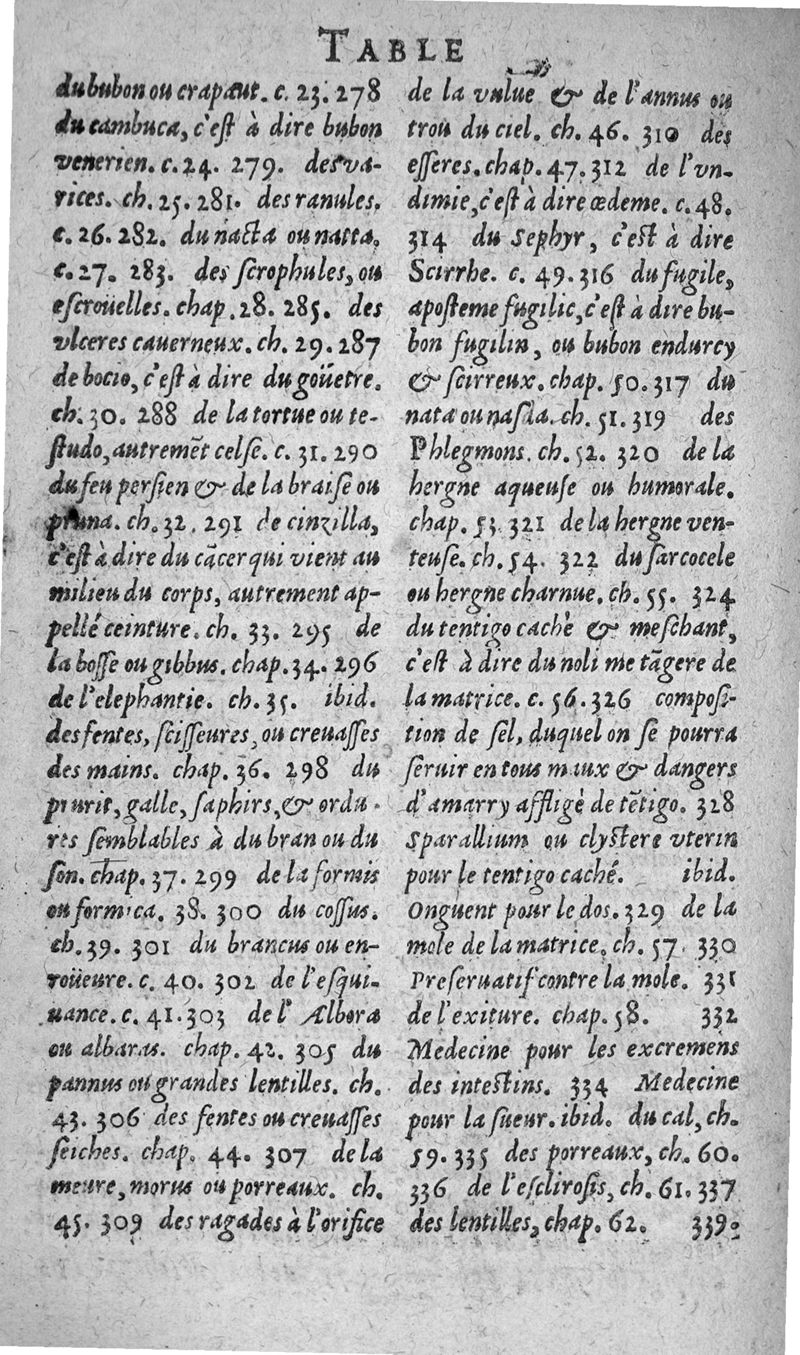 TABLE
du bubon ou crapaut. c. 23. 278
du cambuca, c'est à dire bubon
venerien. c. 24. 279. des va-
rices. ch. 25. 281. des ranules.
c. 26. 282. du nacta ou natta.
c. 27. 283. des scrophules, ou
escroüelles. chap. 28. 285. des
vlceres cauerneux. ch. 29. 287
de bocio, c'est à dire du goüetre.
ch. 30. 288 de la tortue ou te-
studo, autremẽt celse. c. 31. 290
du feu persien & de la braise ou
pruna. ch. 32. 291 de cinzilla,
c'est à dire du cãcer qui vient au
milieu du corps, autrement ap-
pellé ceinture. ch. 33. 295 de
la bosse ou gibbus. chap. 34. 296
de l'elephantie. ch. 35. ibid.
des fentes, scisseures, ou creuasses
des mains. chap. 36. 298 du
prurit, galle, saphirs, & ordu-
res semblables à du bran ou du
son. chap. 37. 299 de la formis
ou formica. 38. 300 du cossus.
ch. 39. 301 du brancus ou en-
roüeure. c. 40. 302 de l'esqui-
uance. c. 41. 303 de l' Albora
ou albaras. chap. 42. 305 du
pannus ou grandes lentilles. ch.
43. 306 des fentes ou creuasses
seiches. chap. 44. 307 de la
meure, morus ou porreaux. ch.
45. 309 des ragades à l'orifice
de la vulue & de l'annus ou
trou du ciel. ch. 46. 310 des
esseres. chap. 47. 312 de l'vn-
dimie, c'est à dire œdeme. c. 48.
314 du Sephyr, c'est à dire
Scirrhe. c. 49. 316 du fugile,
aposteme fugilic, c'est à dire bu-
bon fugilin, ou bubon endurcy
& scirreux. chap. 50. 317 du
nata ou nasda. ch. 51. 319 des
Phlegmons. ch. 52. 320 de la
hergne aqueuse ou humorale.
chap. 53. 321 de la hergne ven-
teuse. ch. 54. 322 du sarcocele
ou hergne charnue. ch. 55. 324
du tentigo cachè & meschant,
c'est à dire du noli me tãgere de
la matrice. c. 56. 326 composi-
tion de sel, duquel on se pourra
seruir en tous maux & dangers
d'amarry affligè de tẽtigo. 328
Sparallium ou clystere vterin
pour le tentigo caché. ibid.
Onguent pour le dos. 329 de la
mole de la matrice. ch. 57. 330
Preseruatif contre la mole. 331
de l'exiture. chap. 58. 332
Medecine pour les excremens
des intestins. 334 Medecine
pour la sueur. ibid. du cal, ch.
59. 335 des porreaux, ch. 60.
336 de l'esclirosis, ch. 61. 337
des lentilles, chap. 62. 339.